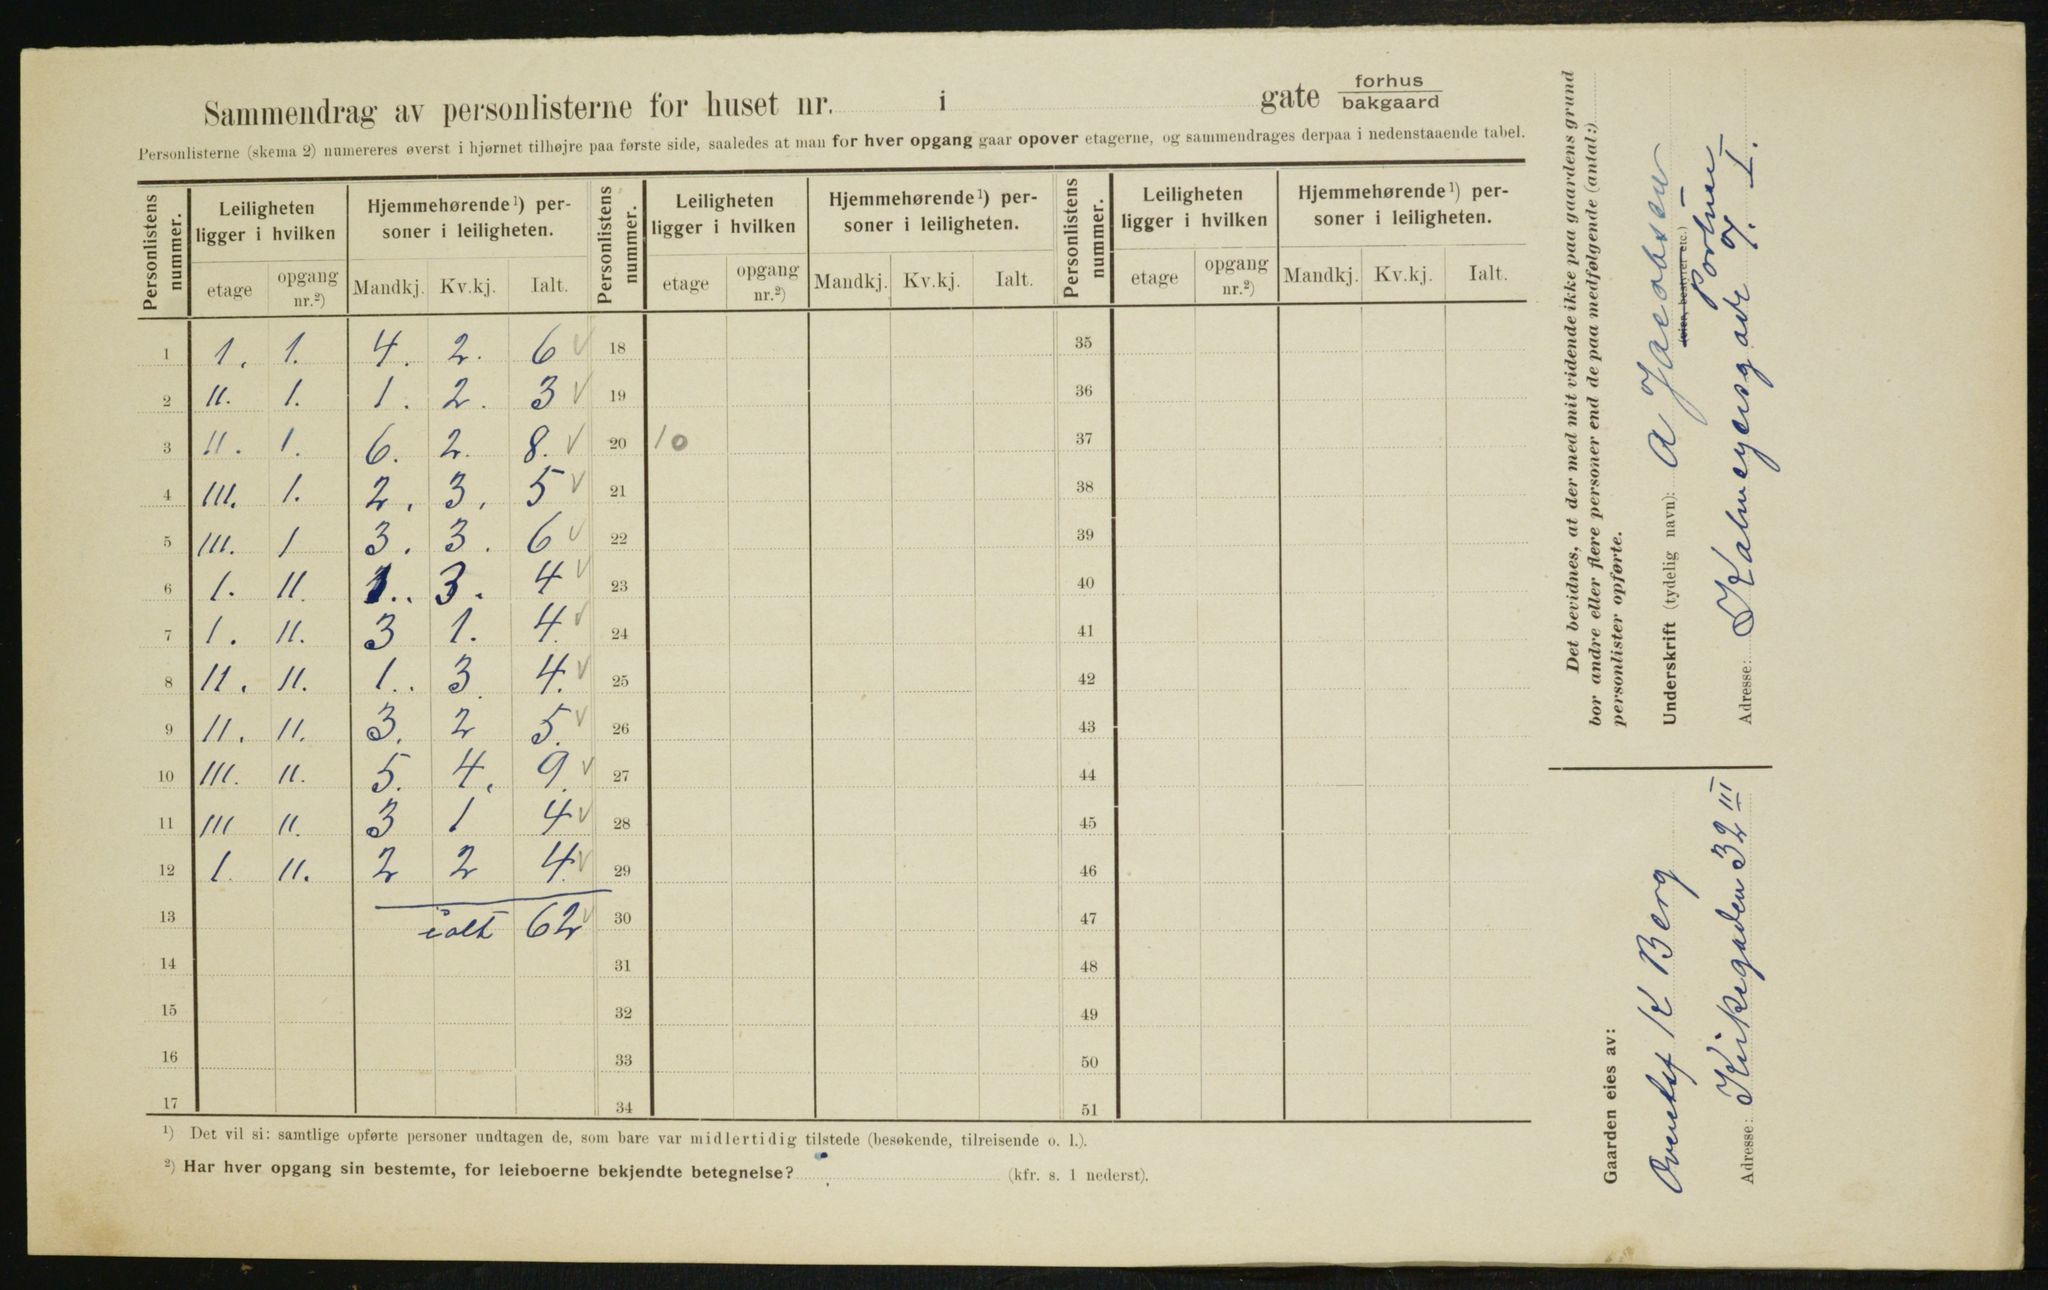 Sammendrag av personlisterne for huset nr. i gate forhus
bakgaard
Personlisterne (skema 2) numereres øverst i hjørnet tilhøjre paa første side, saaledes at man for hver opgang gaar opover etagerne, og sammendrages derpaa i nedenstaaende tabel.
Personlistens nummer. Leiligheten ligger i hvilken Hjemmehørende¹) personer i leiligheten. Personlistens nummer. Leiligheten ligger i hvilken Hjemmehørende¹) personer i leiligheten. Personlistens nummer. Leiligheten ligger i hvilken Hjemmehørende¹) personer i leiligheten.
etage opgang nr.²) Mandkj. Kv.kj. Ialt. etage opgang nr.²) Mandkj. Kv.kj. Ialt. etage opgang nr.²) Mandkj. Kv.kj. Ialt.
1 1. 1. 4. 2. 6 √ 18 35
2 II. 1. 1. 2. 3 √ 19 36
3 II. 1. 6. 2. 8. √ 20 10 37
4 III. 1. 2. 3. 5 √ 21 38
5 III. 1 3. 3. 6 √ 22 39
6 1. II. 1.. 3. 4 √ 23 40
7 1. II. 3 1. 4. √ 24 41
8 II. II. 1.. 3. 4. √ 25 42
9 II. II. 3. 2 5. √ 26 43
10 III. II. 5. 4. 9. √ 27 44
11 III II. 3 1 4 √ 28 45
12 1. II. 2 2 4. √ 29 46
13 ialt 62 √ 30 47
14 31 48
15 32 49
16 33 50
17 34 51
¹) Det vil si: samtlige opførte personer undtagen de, som bare var midlertidig tilstede (besøkende, tilreisende o. l.).
²) Har hver opgang sin bestemte, for leieboerne bekjendte betegnelse? (kfr. s. 1 nederst).
Det bevidnes, at der med mit vidende ikke paa gaardens grund
bor andre eller flere personer end de paa medfølgende (antal:)
personlister opførte.
Underskrift (tydelig navn): A Jacobsen
(eier, bestyrer etc.) Portner
Adresse: Kalmeyersgade 7. I.
Gaarden eies av:
K Berg
Adresse: Kirkegaden 32 III